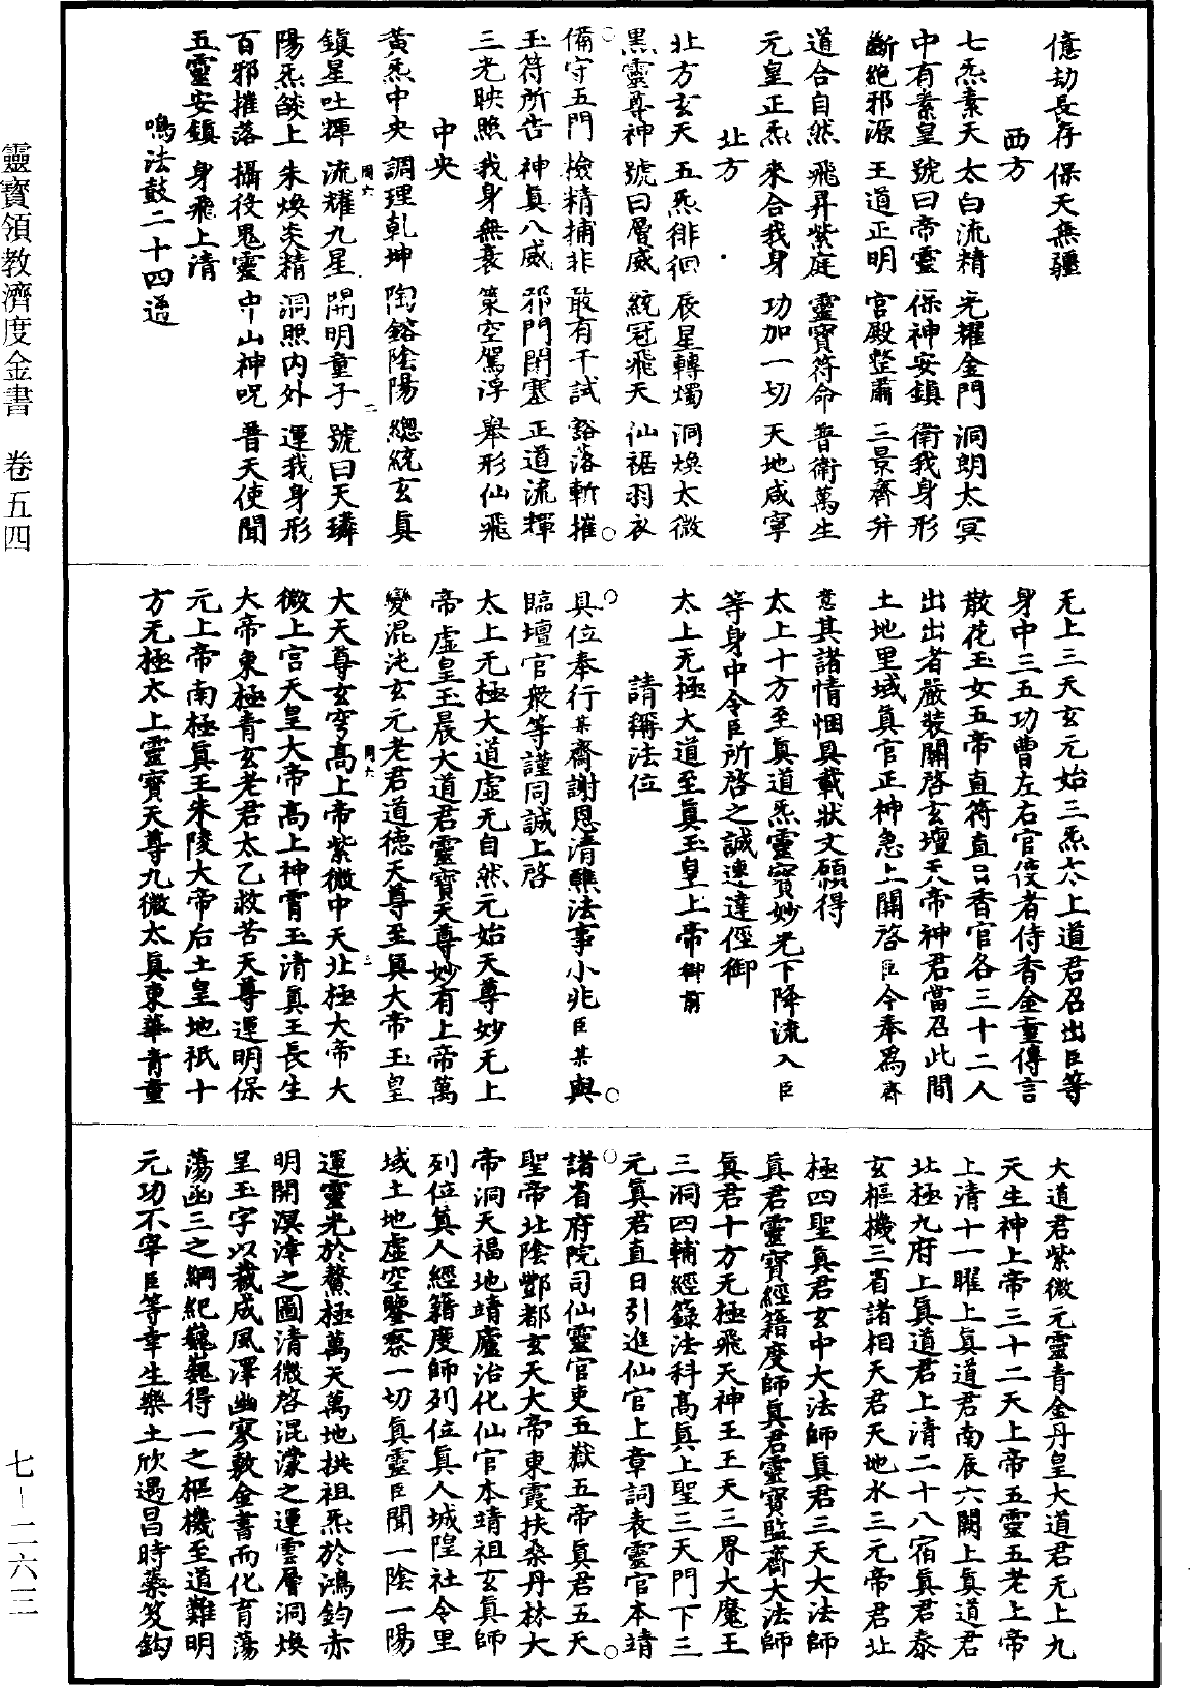 億劫長存　保天無疆
西方
七炁素天　太白流精　光耀金門　洞朗太冥
中有素皇　號曰帝靈　保神安鎮　衛我身形
斷絕邪源　王道正明　宮殿整肅　三景齊并
道合自然　飛昇紫庭　靈寶符命　普衛萬生
元皇正炁　來合我身　功加一切　天地咸寧
北方
北方玄天　五炁徘徊　辰星轉燭　洞煥太微
黑靈尊神　號曰層威　統冠飛天　仙裾羽衣
備守五門　檢精捕非　敢有干試　豁落斬摧
玉符所告　神真八威　邪門閉塞　正道流輝
三光映照　我身無衰　策空駕浮　舉形仙飛
中央
黃炁中央　調理乾坤　陶鎔陰陽　總統玄真
鎮星吐輝　流耀九星　開明童子　號曰天璘
陽炁燄上　朱煥炎精　洞照內外　運我身形
百邪摧落　攝役鬼靈　中山神呪　普天使聞
五靈安鎮　身飛上清
鳴法鼓二十四通
无上三天玄元始三炁太上道君召出臣等
身中三五功曹左右官使者侍香金童傳言
散花玉女五帝直符直日香官各三十二人
出出者嚴裝關啓玄壇天帝神君當召此間
土地里域真官正神急上關啓臣今奉為齋
意其諸情悃具載狀文願得
太上十方至真道炁靈寶妙光下降流入臣
等身中令臣所啓之誠速達徑御
太上无極大道至真玉皇上帝御前
請稱法位
具位奉行某齋謝恩清醮法事小兆臣某與
臨壇官衆等謹同誠上啓
太上无極大道虛无自然元始天尊妙无上
帝虛皇玉晨大道君靈寶天尊妙有上帝萬
變混沌玄元老君道德天尊至真大帝玉皇
大天尊玄穹高上帝紫微中天北極大帝大
微上宮天皇大帝高上神霄玉清真王長生
大帝東極青玄老君太乙救苦天尊運明保
元上帝南極真王朱陵大帝后土皇地祇十
方无極太上靈寶天尊九微太真東華青童
大道君紫微元靈青金丹皇大道君无上九
天生神上帝三十二天上帝五靈五老上帝
上清十一曜上真道君南辰六闕上真道君
北極九府上真道君上清二十八宿真君泰
玄樞機三省諸相天君天地水三元帝君北
極四聖真君玄中大法師真君三天大法師
真君靈寶經籍度師真君靈寶監齋大法師
真君十方无極飛天神王王天三界大魔王
三洞四輔經籙法科高真上聖三天門下三
元真君直日引進仙官上章詞表靈官本靖
諸省府院司仙靈官吏五嶽五帝真君五天
聖帝北陰酆都玄天大帝東霞扶桑丹林大
帝洞天福地靖廬治化仙官本靖祖玄真師
列位真人經籍度師列位真人城隍社令里
域土地虛空鑒察一切真靈臣聞一陰一陽
運靈光於鰲極萬天萬地拱祖炁於鴻鈞赤
明開溟涬之圖清微啓混濛之運雲層洞煥
呈玉字以裁成風澤幽寥敷金書而化育蕩
蕩函三之綱紀巍巍得一之樞機至道難明
元功不宰臣等幸生樂土欣遇昌時蘂笈鈎
靈寶領教濟度金書　卷五四
七–二六三